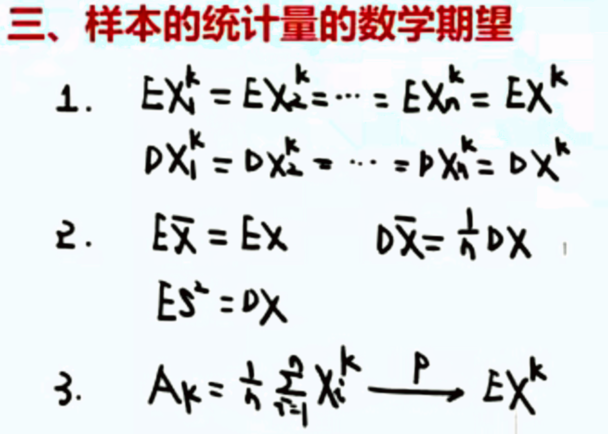 三、样本的统计量的数学期望
1. EX₁ᵏ = EX₂ᵏ = ⋯ = EXₙᵏ = EXᵏ
DX₁ᵏ = DX₂ᵏ = ⋯ = DXₙᵏ = DXᵏ
2. EX̄ = EX DX̄ = 1/n DX
ES² = DX
3. Aₖ = 1/n ∑ᵢ₌₁ⁿ Xᵢᵏ —P→ EXᵏ